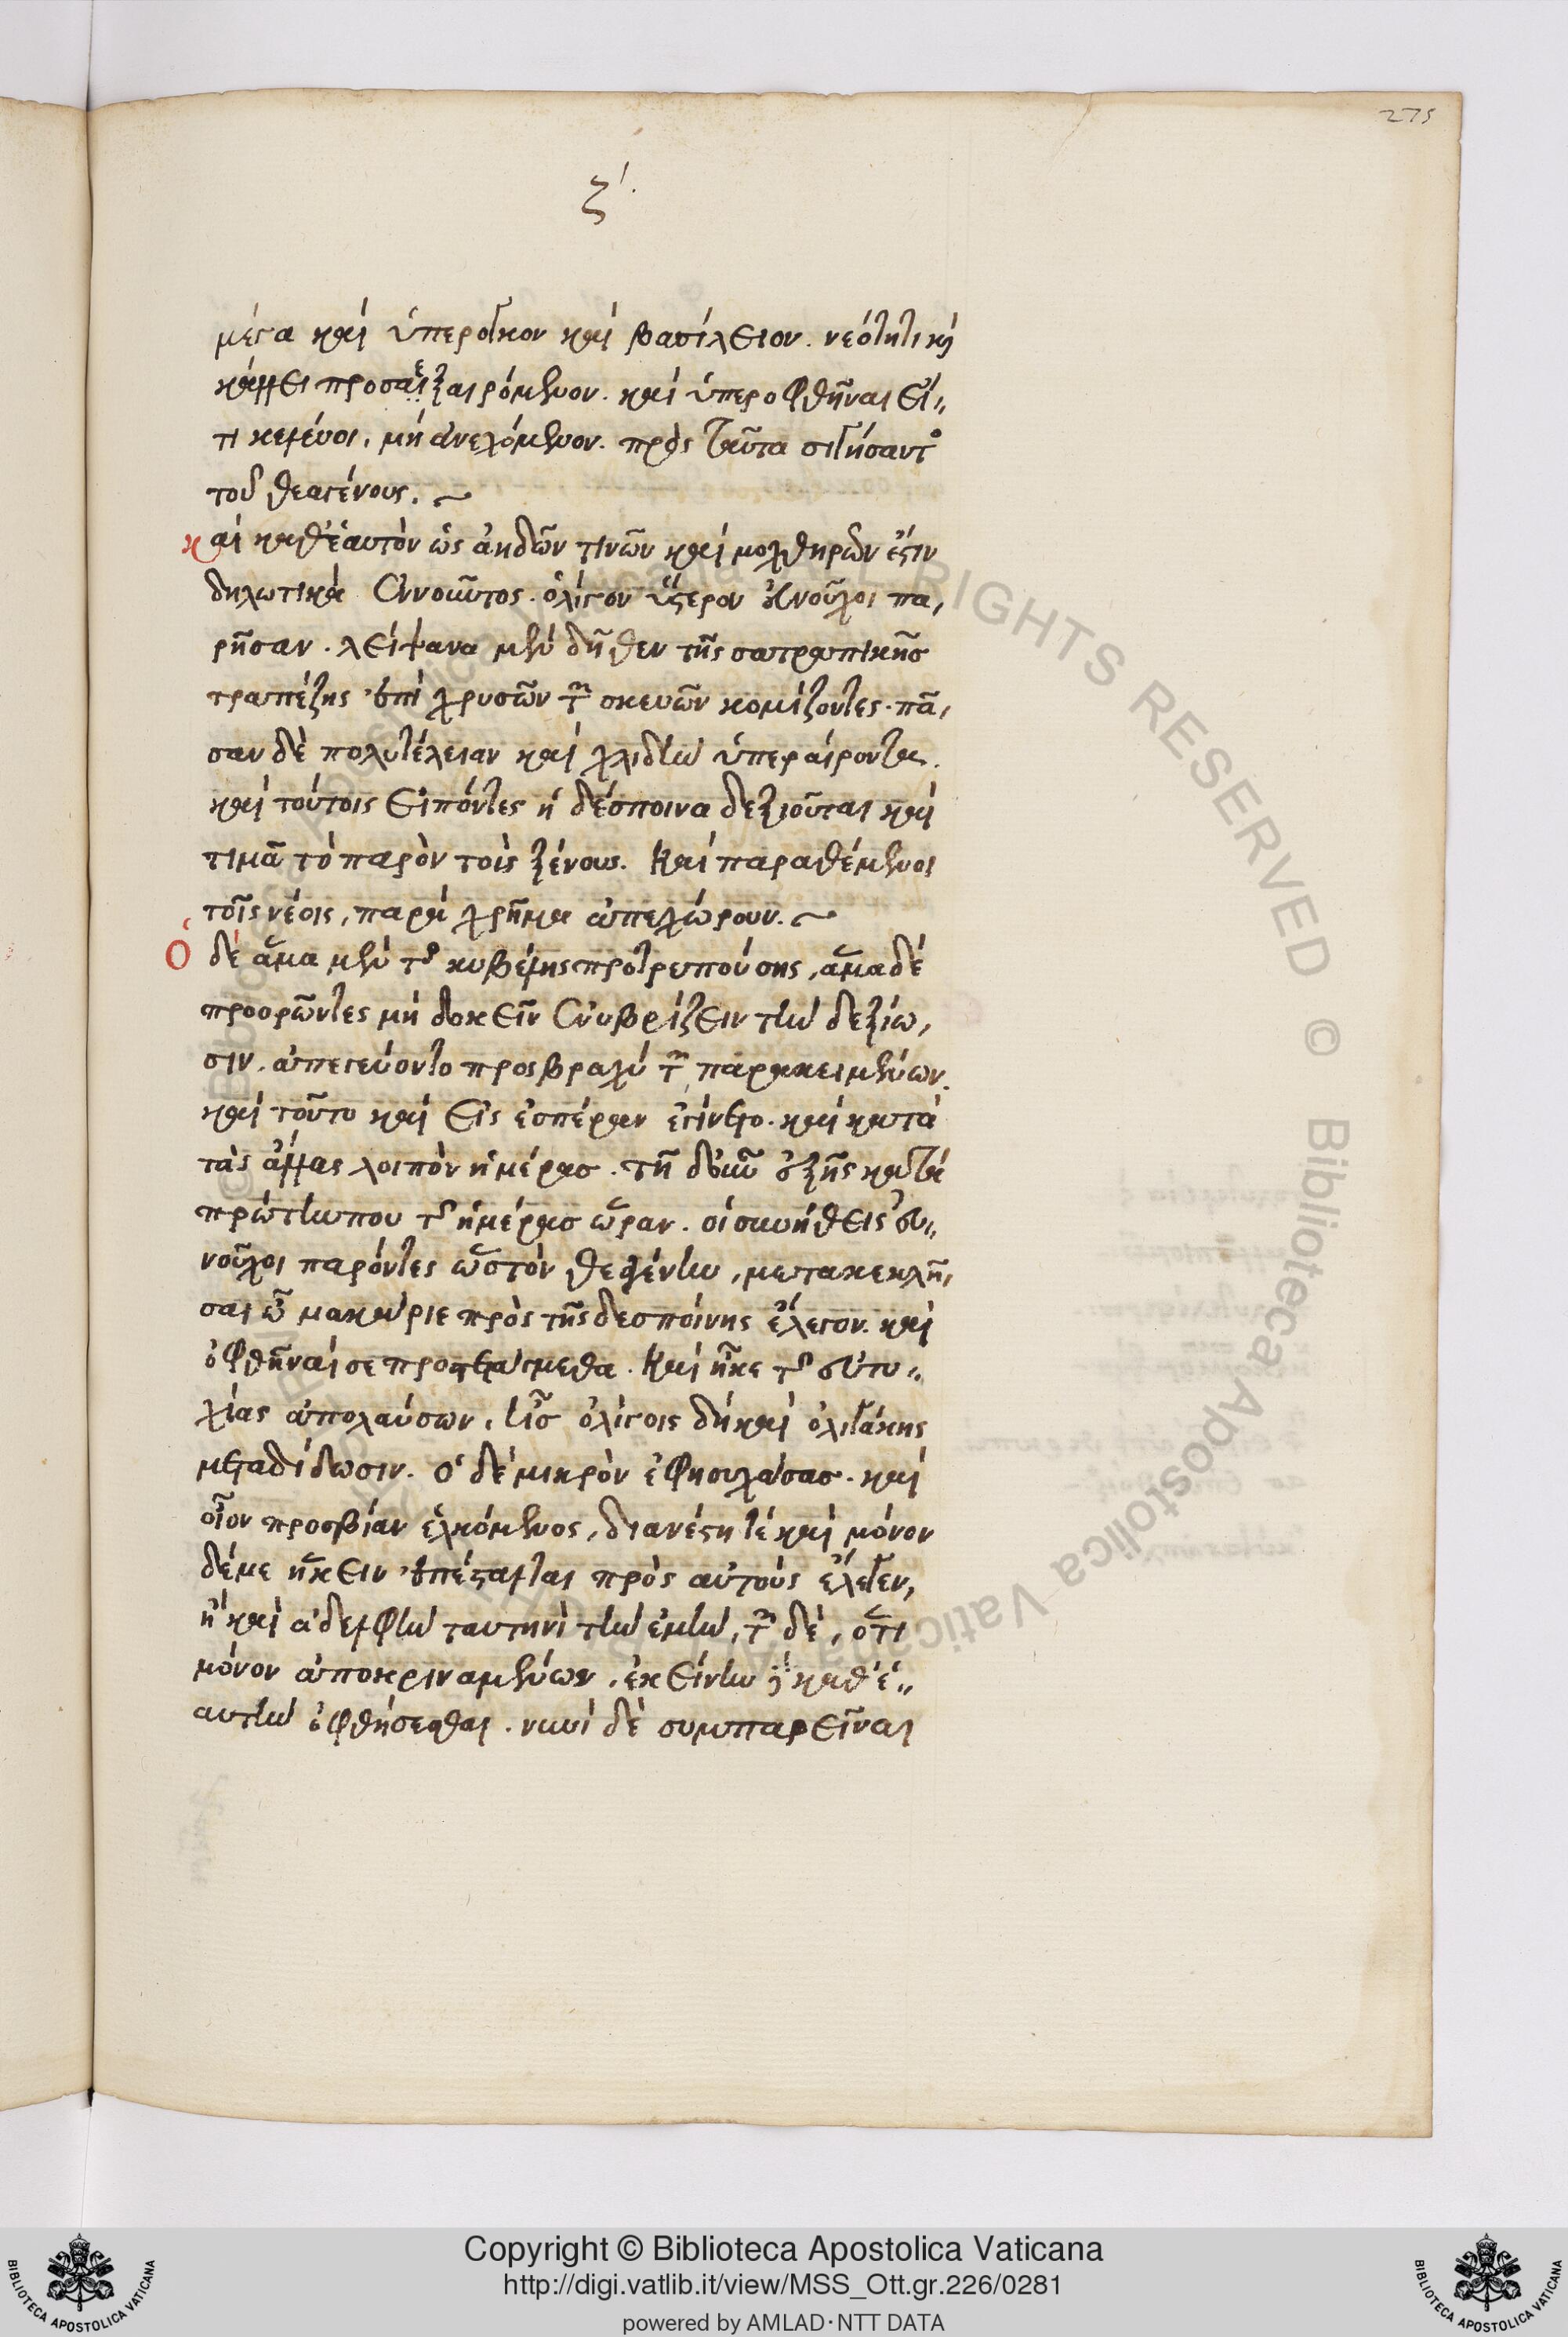 275
ζ΄.
μέγα καὶ ὑπέρογκον καὶ βασίλειον. νεότητι καὶ
κάλλει προσεξαιρόμενον. καὶ ὑπεροφθῆναι εἴ,,
τι κελεύοι, μὴ ἀνεχόμενον. πρὸς ταῦτα σιγήσαντος
τοῦ θεαγένους. ~
καὶ καθ' ἑαυτὸν ὡς ἀηδῶν τινῶν καὶ μοχθηρῶν ἐστιν
δηλωτικὰ ἐννοοῦντος. ὀλίγον ὕστερον εὐνοῦχοι πα,
ρῆσαν. λείψανα μὲν δῆθεν τῆς σατραπικῆς
τραπέζης ἐπὶ χρυσῶν τῶν σκευῶν κομίζοντες. πᾶ,
σαν δὲ πολυτέλειαν καὶ χλιδὴν ὑπεραίροντα.
καὶ τούτοις εἰπόντες ἡ δέσποινα δεξιοῦται καὶ
τιμᾶ τὸ παρὸν τοὺς ξένους. Καὶ παραθέμενοι
τοῖς νέοις, παρὰ χρῆμα ἀπεχώρουν. ~
Ὁ δὲ ἅμα μὲν τῆς κυβέλης προτρεπούσης, ἅμα δὲ
προορῶντες μὴ δοκεῖν ἐνυβρίζειν τὴν δεξίω,
σιν. ἀπεγεύοντο προσβραχὺ τῶν παρακειμένων.
καὶ τοῦτο καὶ εἰς ἑσπέραν ἐγίνετο. καὶ κατὰ
τὰς ἄλλας λοιπὸν ἡμέρας. τῆ δ' οὖν ἑξῆς κατὰ
πρώτην που τῆς ἡμέρας ὥραν. οἱ συνήθεις εὐ,,
νοῦχοι παρόντες ὡς τὸν θεαγένην, μετακεκλῆ,
σαι ὦ μακάριε πρὸς τῆς δεσποίνης ἔλεγον. καὶ
ὀφθῆναί σε προστετάγμεθα. Καὶ ἧκε τῆς εὐτυ,,
χίας ἀπολαύσων, ἧς ὀλίγοις δὴ καὶ ὀλιγάκις
μεταδίδωσιν. ὁ δὲ μικρὸν ἐφησυχάσας. καὶ
οἷον προσβίαν ἑλκόμενος, διανέστη τὲ καὶ μόνον
δέ με ἥκειν ἐπέσταλται πρὸς αὐτοὺς ἔλεγεν,
ἢ καὶ ἀδελφὴν ταυτηνὶ τὴν ἐμὴν, τῶν δὲ, ὅτι
μόνον ἀποκριναμένων, ἐκείνην καὶ καθ' ἑ,,
αυτὴν ὀφθήσεσθαι. νυνὶ δὲ συμπαρεῖναι
© Biblioteca Apostolica Vaticana
ALL RIGHTS RESERVED
Copyright © Biblioteca Apostolica Vaticana
http://digi.vatlib.it/view/MSS_Ott.gr.226/0281
powered by AMLAD·NTT DATA
BIBLIOTECA APOSTOLICA VATICANA
BIBLIOTECA APOSTOLICA VATICANA